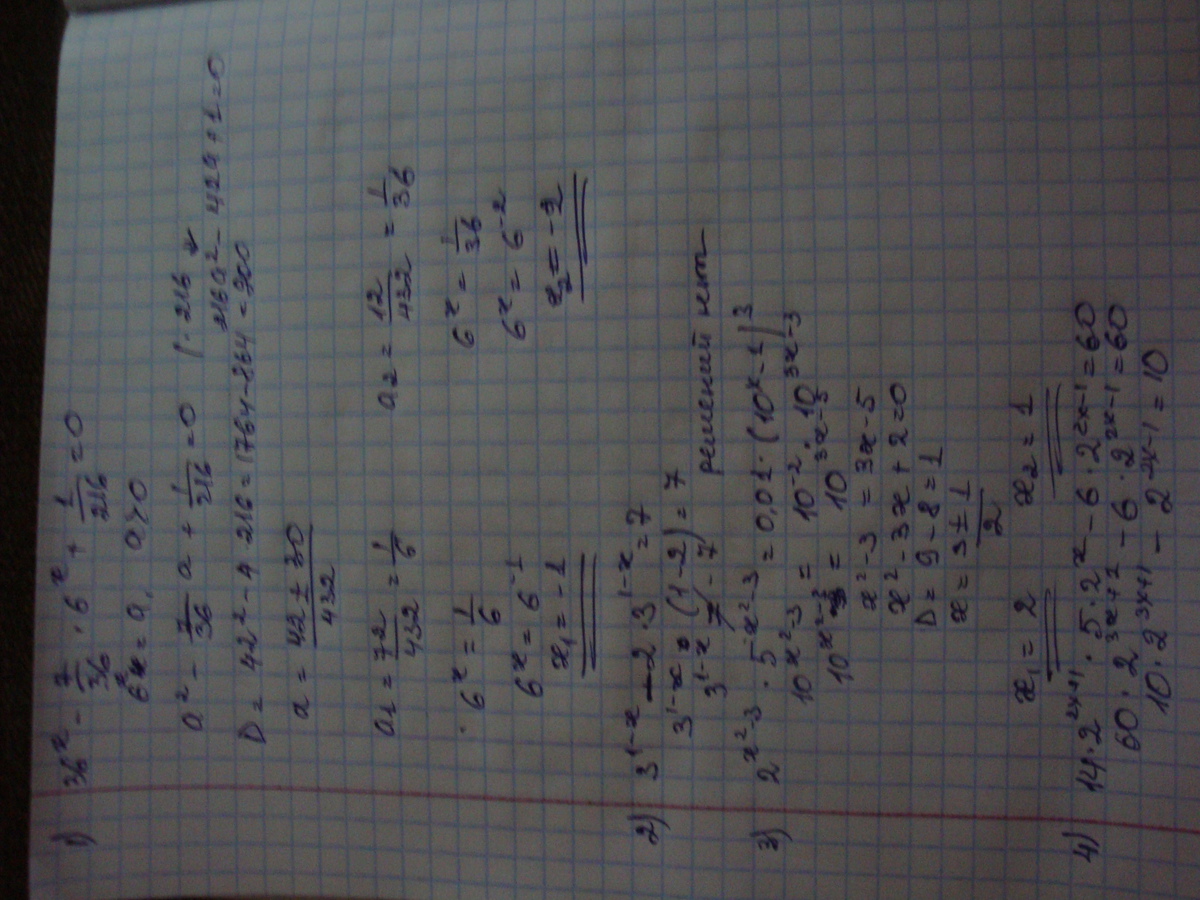 1) 36^x - 7/36 · 6^x + 1/216 = 0
6^x = a, a > 0
a² - 7/36 a + 1/216 = 0 | · 216
216a² - 42a + 1 = 0
D = 42² - 4 · 216 = 1764 - 864 = 900
a = (42 ± 30)/432
a₁ = 72/432 = 1/6 a₂ = 12/432 = 1/36
6^x = 1/6 6^x = 1/36
6^x = 6^-1 6^x = 6^-2
x₁ = -1 x₂ = -2
2) 3^(1-x) - 2 · 3^(1-x) = 7
3^(1-x) (1-2) = 7
3^(1-x) = -7 решений нет
3) 2^(x²-3) · 5^(x²-3) = 0,01 · (10^(x-1))^3
10^(x²-3) = 10^-2 · 10^(3x-3)
10^(x²-3) = 10^(3x-5)
x² - 3 = 3x - 5
x² - 3x + 2 = 0
D = 9 - 8 = 1
x = (3 ± 1)/2
x₁ = 2 x₂ = 1
4) 14 · 2^(2x+1) · 5 · 2^x - 6 · 2^(2x-1) = 60
60 · 2^(3x+1) - 6 · 2^(2x-1) = 60
10 · 2^(3x+1) - 2^(2x-1) = 10